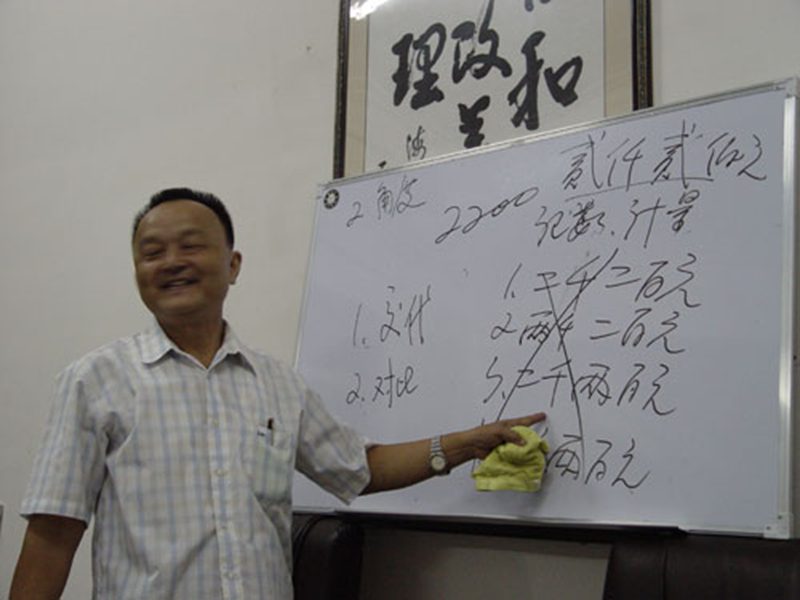 和
政
理
海
2.角度
2200
贰仟贰佰元
记数、计量
1.交代
2.对比
1.二千二百元
2.两千二百元
3.二千两百元
两百元